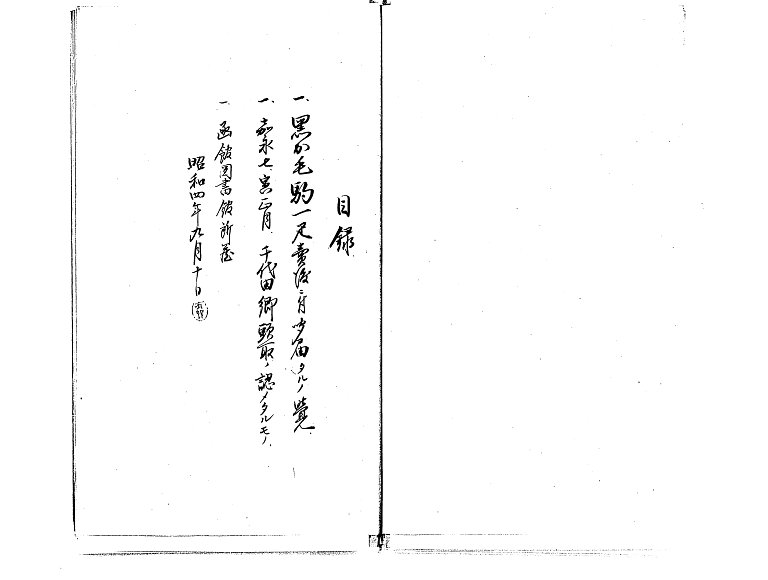 目録
一、黒か毛駒一疋賣渡ニ付御届タルノ覺
一、嘉永七寅正月千代田郷頭取ノ認メタルモノ
一 函館図書館所蔵
昭和四年九月十日